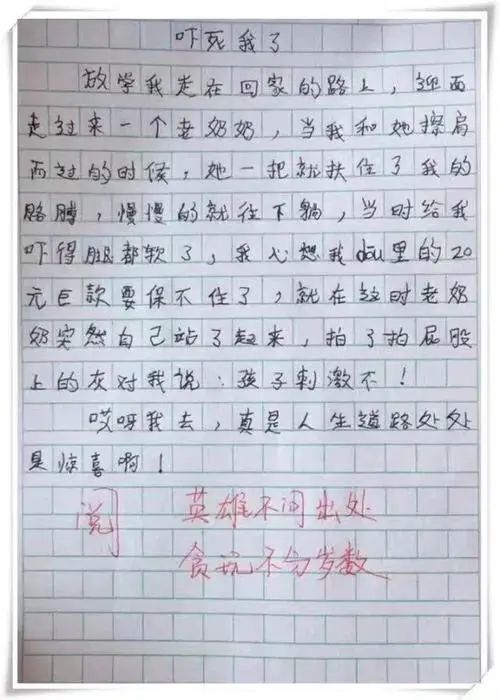 吓死我了
放学我走在回家的路上，迎面
走过来一个老奶奶，当我和她擦肩
而过的时候，她一把就扶住了我的
胳膊，慢慢的就往下躺，当时给我
吓得腿都软了，我心想我dōu里的20
元巨款要保不住了，就在这时老奶
奶突然自己站了起来，拍了拍屁股
上的灰对我说：孩子刺激不！
哎呀我去，真是人生道路处处
是惊喜啊！
阅
英雄不问出处
贪玩不分岁数